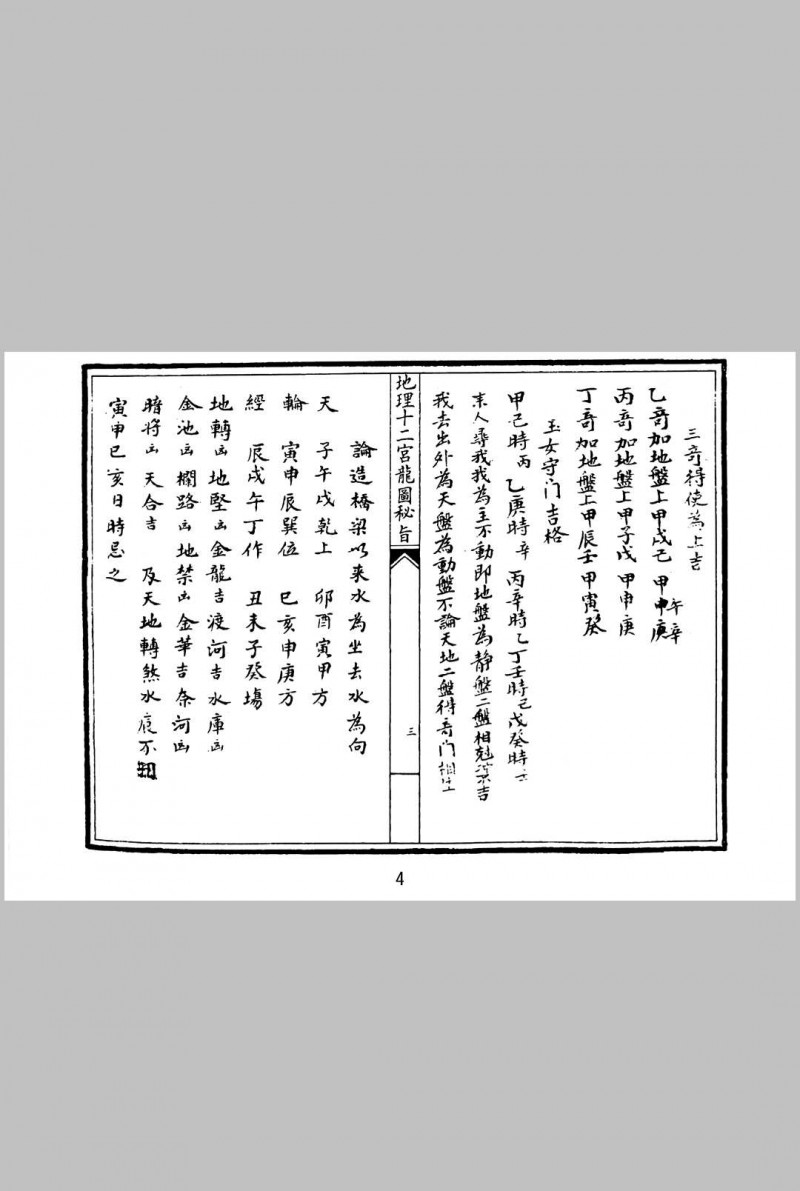 三奇得使為上吉
乙奇加地盤上甲戌己 甲申庚 午辛
丙奇加地盤上甲子戊 甲申庚
丁奇加地盤上甲辰壬 甲寅癸
玉女守门吉格
甲己時丙 乙庚時辛 丙辛時乙 丁壬時己 戊癸時壬
来人尋我我為主不動即地盤為静盤二盤相尅吉
我去出外為天盤為動盤不論天地二盤得奇门相生
地理十二宫龍圖秘旨
三
論造橋梁以来水為坐去水為向
天 子午戌乾上 卯酉寅甲方
輪 寅申辰巽位 巳亥申庚方
經 辰戌午丁作 丑未子癸塲
地轉凶 地堅凶 金龍吉 渡河吉 水庫凶
金池凶 欄路凶 地禁凶 金華吉 奈河凶
暗將凶 天合吉 及天地轉煞水底不
寅申巳亥日時忌之
4